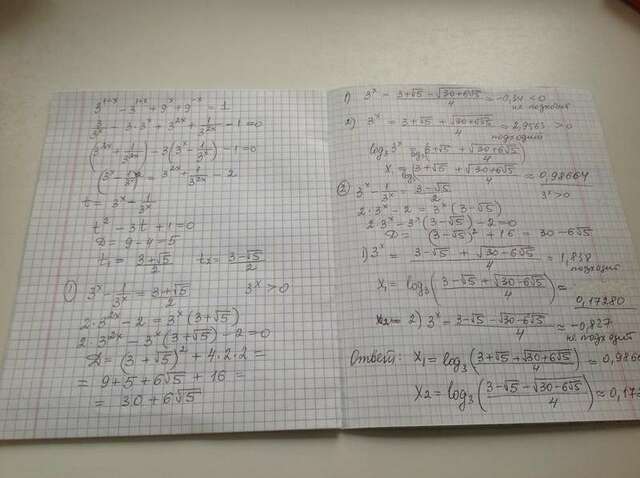 3^{1-x} - 3^{1+x} + 9^x + 9^{-x} = 1
\frac{3}{3^x} - 3·3^x + 3^{2x} + \frac{1}{3^{2x}} - 1 = 0
(3^{2x} + \frac{1}{3^{2x}}) - 3(3^x - \frac{1}{3^x}) - 1 = 0
(3^x - \frac{1}{3^x})^2 = 3^{2x} + \frac{1}{3^{2x}} - 2
t = 3^x - \frac{1}{3^x}
t^2 - 3t + 1 = 0
D = 9 - 4 = 5
t_1 = \frac{3+√5}{2} t_2 = \frac{3-√5}{2}
① 3^x - \frac{1}{3^x} = \frac{3+√5}{2} 3^x > 0
2·3^{2x} - 2 = 3^x(3+√5)
2·3^{2x} - 3^x(3+√5) - 2 = 0
D = (3+√5)^2 + 4·2·2 =
= 9 + 5 + 6√5 + 16 =
= 30 + 6√5
1) 3^x = \frac{3+√5 - √(30+6√5)}{4} ≈ -0,34 < 0
не подходит
2) 3^x = \frac{3+√5 + √(30+6√5)}{4} ≈ 2,9563 > 0
подходит
log_3 3^x = log_3(\frac{3+√5 + √(30+6√5)}{4})
x_1 = log_3(\frac{3+√5 + √(30+6√5)}{4}) ≈ 0,98664
② 3^x - \frac{1}{3^x} = \frac{3-√5}{2} 3^x > 0
2·3^{2x} - 2 = 3^x(3-√5)
2·3^{2x} - 3^x(3-√5) - 2 = 0
D = (3-√5)^2 + 16 = 30 - 6√5
1) 3^x = \frac{3-√5 + √(30-6√5)}{4} = 1,838
подходит
x_1 = log_3(\frac{3-√5 + √(30-6√5)}{4}) =
0,17280
2) 3^x = \frac{3-√5 - √(30-6√5)}{4} ≈ -0,827
не подходит
Ответ: x_1 = log_3(\frac{3+√5 + √(30+6√5)}{4}) ≈ 0,986
x_2 = log_3(\frac{3-√5 - √(30-6√5)}{4}) ≈ 0,172